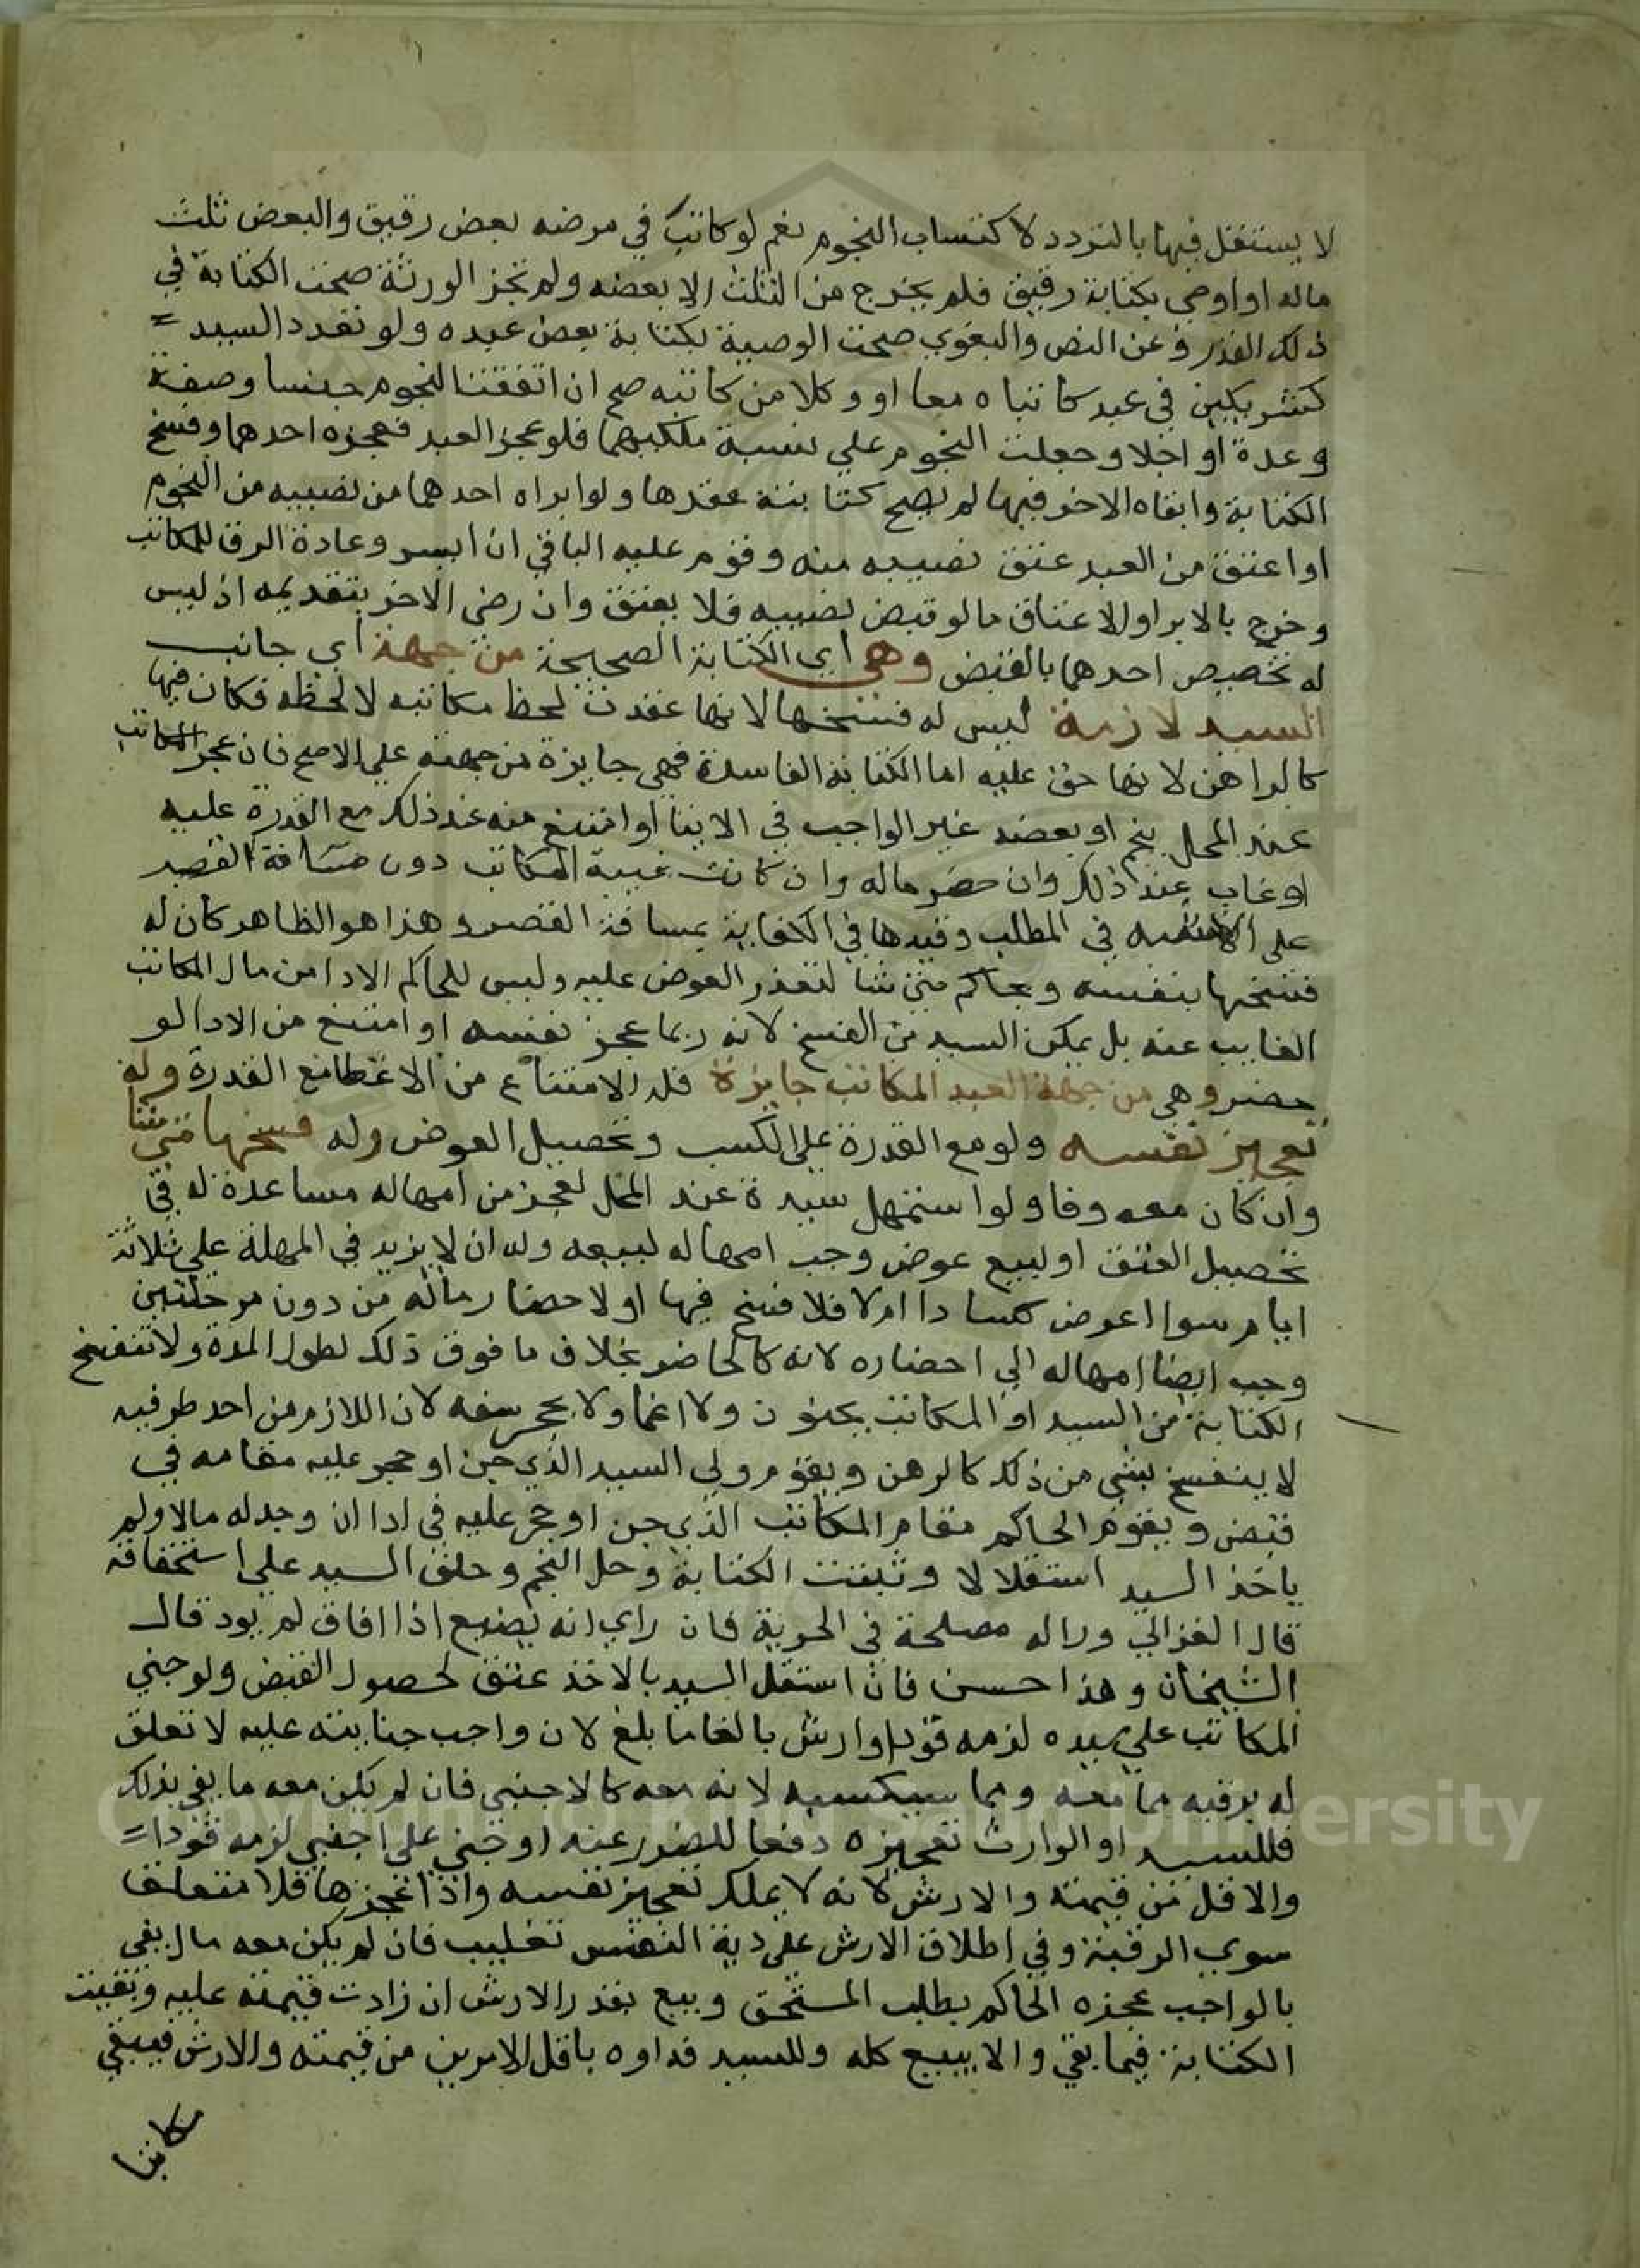 لا يستقل فيها بالتردد لاكتساب النجوم نعم لو كاتب في مرضه بعض رقيق والبعض ثلث
ماله او اوصى بكتابة رقيق فلم يخرج من الثلث الا بعضه ولم تجز الورثة صحت الكتابة في
ذلك القدر وعن النص والبغوي صحت الوصية بكتابة بعض عبده ولو تعدد السيد
كشريكين في عبد كاتباه معا او وكلا من كاتبه صح ان اتفقتا النجوم جنسا وصفة
وعدة او اجلا وجعلت النجوم على نسبة ملكيهما فلو عجز العبد فعجزه احدهما وفسخ
الكتابة وابقاه الاخر فيها لم تصح كتابته عقدها ولو ابراه احدهما من نصيبه من النجوم
او اعتق من العبد عتق نصيبه منه وقوم عليه الباقي ان ايسر وعادة الرق للمكاتب
وخرج بالابرا والاعتاق ما لو قبض نصيبه فلا يعتق وان رضى الاخر بتقديمه اذ ليس
له تخصيص احدهما بالقبض وهي اي الكتابة الصحيحة من جهة اي جانب
السيد لازمة ليس له فسخها لانها عقدت لحظ مكاتبه لا لحظه فكان فيها
كالراهن لانها حق عليه اما الكتابة الفاسدة فهي جايزة من جهته على الاصح فان عجز المكاتب
عند المحل بنجم او بعضه غير الواجب في الايتا او امتنع منه عند ذلك مع القدرة عليه
او غاب عند ذلك وان حضر ماله وان كانت غيبة المكاتب دون مسافة القصر
على الاشبه في المطلب وقيدها في الكفاية بمسافة القصر وهذا هو الظاهر كان له
فسخها بنفسه وبحاكم متى شا لتعذر العوض عليه وليس للحاكم الادا من مال المكاتب
الغايب عنه بل يمكن السيد من الفسخ لانه ربما عجز نفسه او امتنع من الادا لو
حضر وهي من جهة العبد المكاتب جايزة فله الامتناع من الاعطا مع القدرة وله
تعجيز نفسه ولو مع القدرة على الكسب وتحصيل العوض وله فسخها متى شا
وان كان معه وفا ولو استمهل سيده عند المحل لعجز من امهاله مساعدة له في
تحصيل العتق او لبيع عوض وجب امهاله لبيعه وله ان لا يزيد في المهلة على ثلاثة
ايام سوا اعوض كسادا ام لا فلا فسخ فيها او لاحضار ماله من دون مرحلتين
وجب ايضا امهاله الي احضاره لانه كالحاضر بخلاف ما فوق ذلك لطول المدة ولا تنفسخ
الكتابة من السيد او المكاتب بجنون ولا اغما ولا بحجر سفه لان اللازم من احد طرفيه
لا ينفسخ بشى من ذلك كالرهن ويقوم ولي السيد الذي جن او حجر عليه مقامه في
قبض ويقوم الحاكم مقام المكاتب الذي جن او حجر عليه في ادا ان وجد له مالا ولم
ياخذ السيد استقلالا وثبتت الكتابة وحل النجم وحلف السيد على استحقاقه
قال الغزالي وراله مصلحة في الحرية فان راي انه يضيع اذا افاق لم يود قال
الشيخان وهذا حسن فان استقل السيد بالاخذ عتق لحصول القبض ولو جنى
المكاتب على سيده لزمه قود او ارش بالغا ما بلغ لان واجب جنايته عليه لا تعلق
له برقبه مما معه ومما سيكسبه لانه معه كالاجنبي فان لم يكن معه ما يفي بذلك
فللسيد او الوارث تعجيزه دفعا للضرر عنه او جنى على اجنبي لزمه قودا
والاقل من قيمته والارش لانه لا يملك تعجيز نفسه واذا عجزها فلا متعلق
سوى الرقبة وفي اطلاق الارش على دية النفس تغليب فان لم يكن معه مال يفي
بالواجب عجزه الحاكم بطلب المستحق وبيع بقدر الارش ان زادت قيمته عليه وبقيت
الكتابة فيما بقي والا بيع كله وللسيد فداوه باقل الامرين من قيمته والارش فيبقي
مكاتبا
Copyright © King Saud University